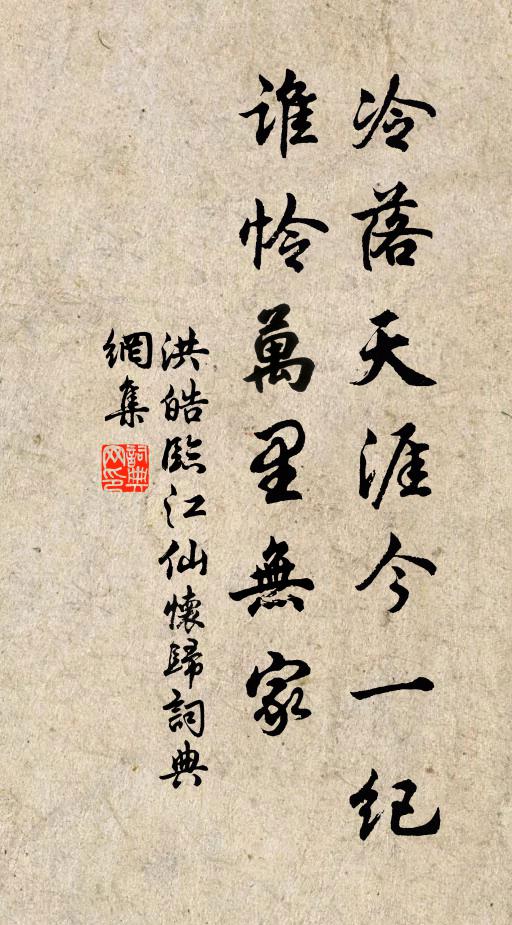 冷落天涯今一紀
誰憐萬里無家
洪皓臨江仙懷歸詞典
網集
詞典
网印